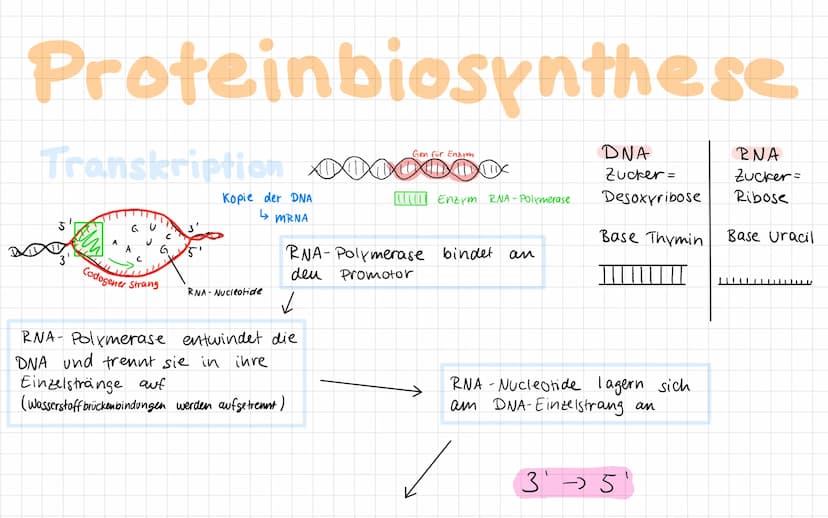 Proteinbiosynthese
Transkription
Gen für Enzym
Kopie der DNA
↳ mRNA
Enzym RNA-Polymerase
DNA
Zucker =
Desoxyribose
Base Thymin
RNA
Zucker =
Ribose
Base Uracil
5'
3'
G U
A U
A G
C
3'
5'
Codogener Strang
RNA-Nucleotide
RNA-Polymerase bindet an
den Promotor
RNA-Polymerase entwindet die
DNA und trennt sie in ihre
Einzelstränge auf
(Wasserstoffbrückenbindungen werden aufgetrennt)
RNA-Nucleotide lagern sich
am DNA-Einzelstrang an
3' → 5'